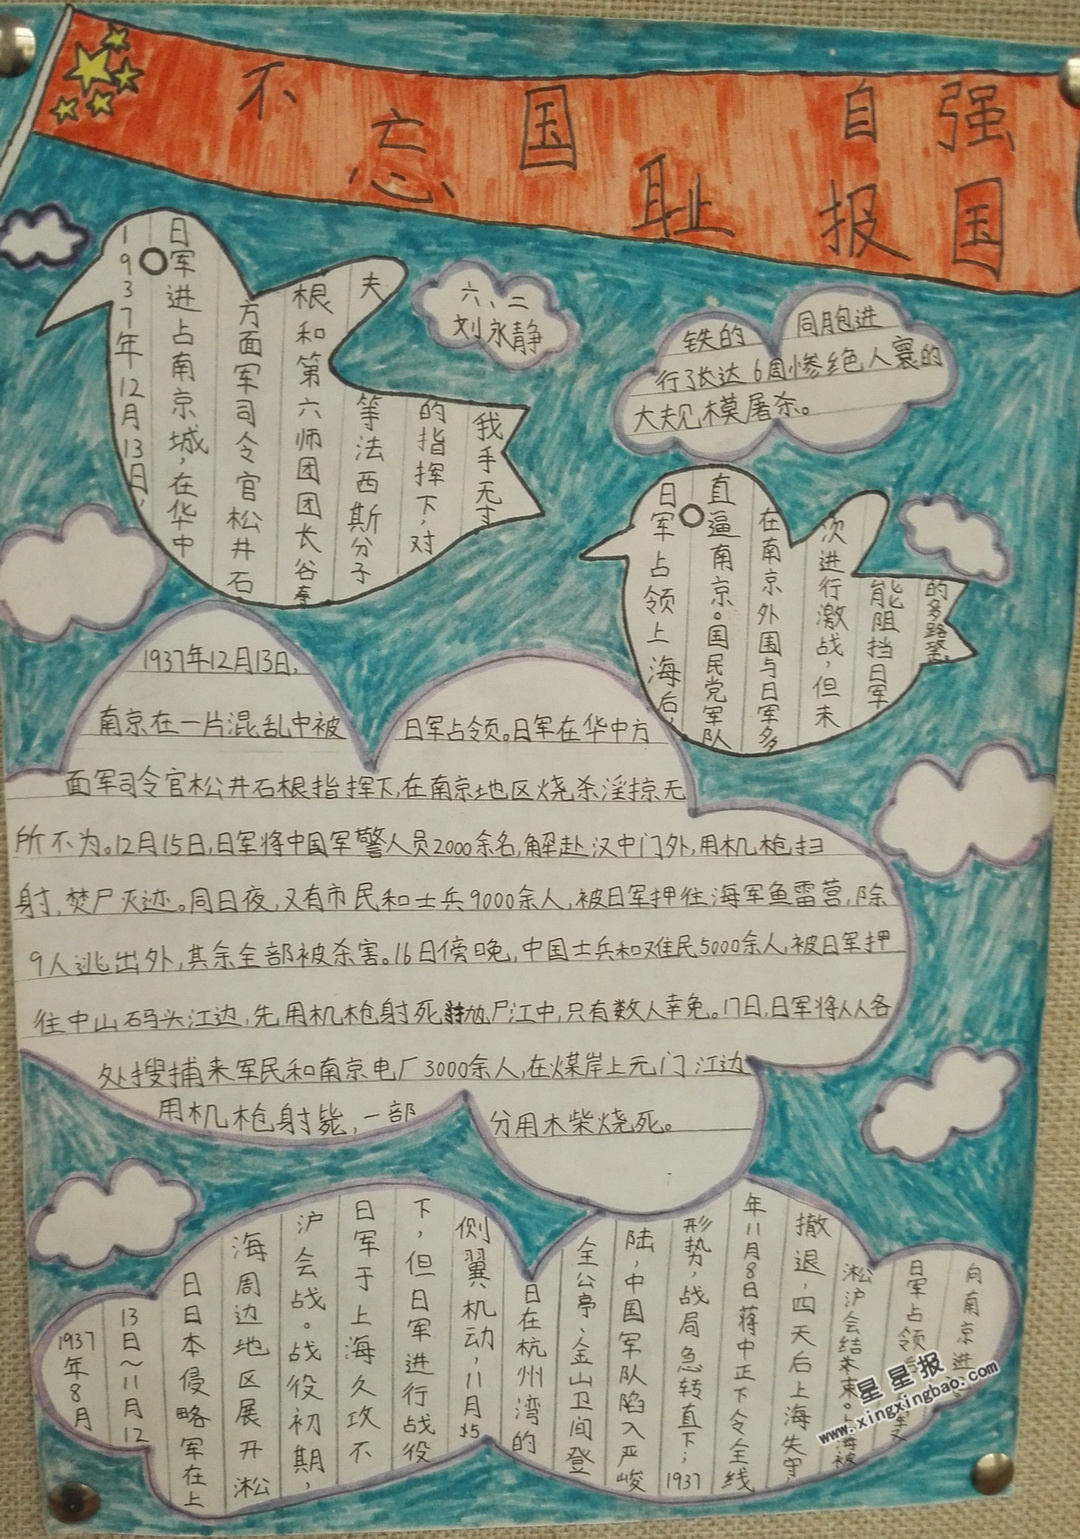 不忘国耻
自强
报国
1937年12月13日,
日军进占南京城,在华中
方面军司令官松井石
根和第六师团团长谷寿
夫等法西斯分子
的指挥下,对
我手无寸
六、二
刘永静
铁的同胞进
行了长达6周惨绝人寰的
大规模屠杀。
日军占领上海后,
直逼南京。国民党军队
在南京外围与日军多
次进行激战,但未
能阻挡日军
的多路
1937年12月13日,
南京在一片混乱中被日军占领。日军在华中方
面军司令官松井石根指挥下,在南京地区烧杀淫掠无
所不为。12月15日,日军将中国军警人员2000余名,解赴汉中门外,用机枪扫
射,焚尸灭迹。同日夜,又有市民和士兵9000余人,被日军押往海军鱼雷营,除
9人逃出外,其余全部被杀害。16日傍晚,中国士兵和难民5000余人,被日军押
往中山码头江边,先用机枪射死,尸江中,只有数人幸免。17日,日军将从各
处搜捕来军民和南京电厂3000余人,在煤岸上元门江边
用机枪射毙,一部分用木柴烧死。
1937年8月
13日~11月12
日日本侵略军在上
海周边地区展开淞
沪会战。战役初期,
日军于上海久攻不
下,但日军进行战役
侧翼机动,11月5
日在杭州湾的
全公亭、金山卫间登
陆,中国军队陷入严峻
形势,战局急转直下;1937
年11月8日蒋中正下令全线
撤退,四天后上海失守,
淞沪会结束。上海被
日军占领
向南京进
星星报
www.xingxingbao.com